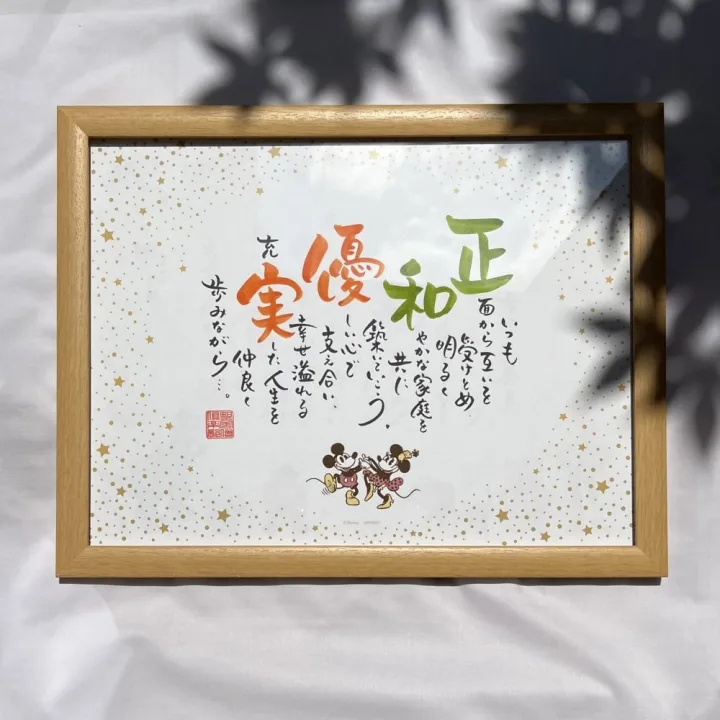 いつも
正面から互いを
受けとめ
明るく
和やかな家庭を
共に
築いていこう。
優しい心で
支え合い、
幸せ溢れる
充実した人生を
仲良く
歩みながら…。
©Disney